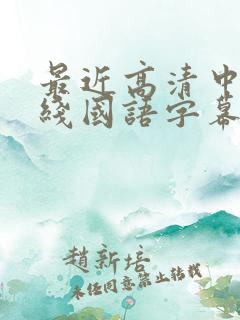 最近高清中
綫國語字幕
趙新培
未任同意禁止转载